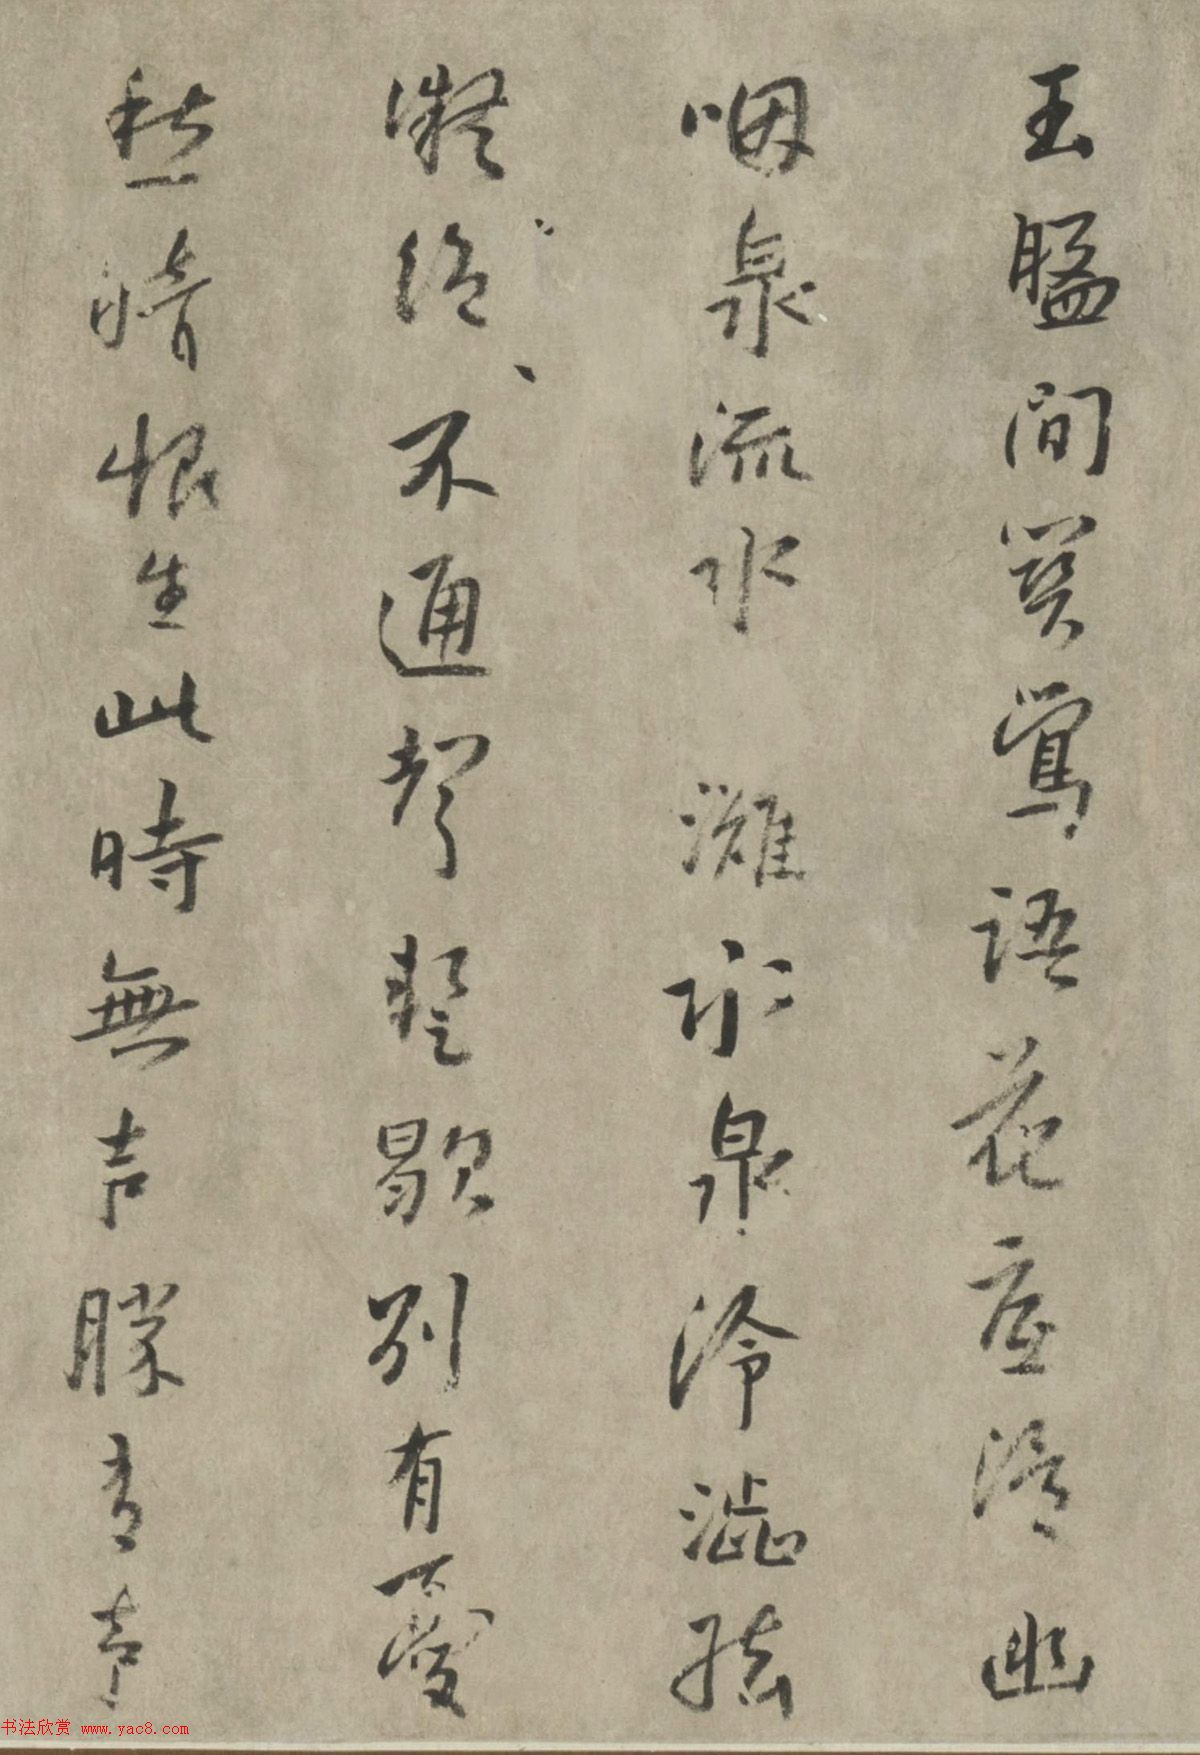 玉盤間關鶯語花底滑幽
咽泉流水灘氷泉冷澀絃
凝絕不通聲暫歇別有憂
愁暗恨生此時無声勝有声
书法欣赏 www.yac8.com